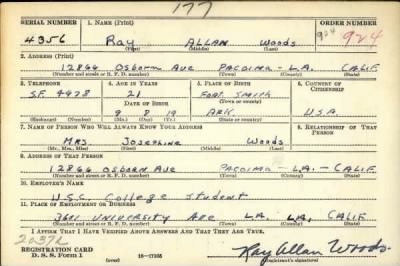 177
SERIAL NUMBER 1. NAME (Print) ORDER NUMBER
4356 Ray ALLAN Woods 924 924
(First) (Middle) (Last)
2. ADDRESS (Print)
12866 Osborn Ave PACOIMA - L.A. CALIF.
(Number and street or R. F. D. number) (Town) (County) (State)
3. TELEPHONE 4. AGE IN YEARS 5. PLACE OF BIRTH 6. COUNTRY OF CITIZENSHIP
S.F. 4978 21 FORT SMITH
DATE OF BIRTH (Town or county)
9 8 19 ARK. U.S.A.
(Exchange) (Number) (Mo.) (Day) (Yr.) (State or country)
7. NAME OF PERSON WHO WILL ALWAYS KNOW YOUR ADDRESS 8. RELATIONSHIP OF THAT PERSON
Mrs. Josephine Woods
(Mr., Mrs., Miss) (First) (Middle) (Last)
9. ADDRESS OF THAT PERSON
12866 Osborn Ave PACOIMA - L.A. - CALIF.
(Number and street or R. F. D. number) (Town) (County) (State)
10. EMPLOYER'S NAME
U.S.C. College Student
11. PLACE OF EMPLOYMENT OR BUSINESS
3601 UNIVERSITY AVE L.A. L.A. CALIF.
(Number and street or R. F. D. number) (Town) (County) (State)
I AFFIRM THAT I HAVE VERIFIED ABOVE ANSWERS AND THAT THEY ARE TRUE.
REGISTRATION CARD
D. S. S. Form 1 (over) Ray Allan Woods
(Registrant's signature)